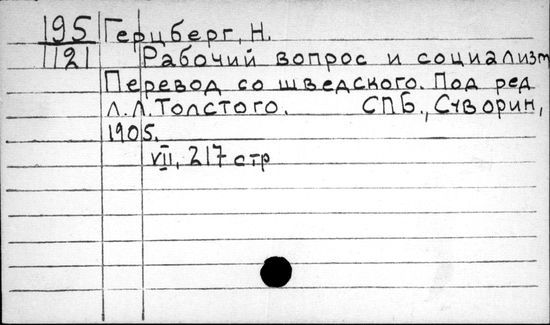 195 Герцберг, Н.
1121 Рабочий вопрос и социализм
Перевод со шведского. Под ред
Л.Л.Толстого. СПБ., Суворин,
1905.
VII, 217 стр